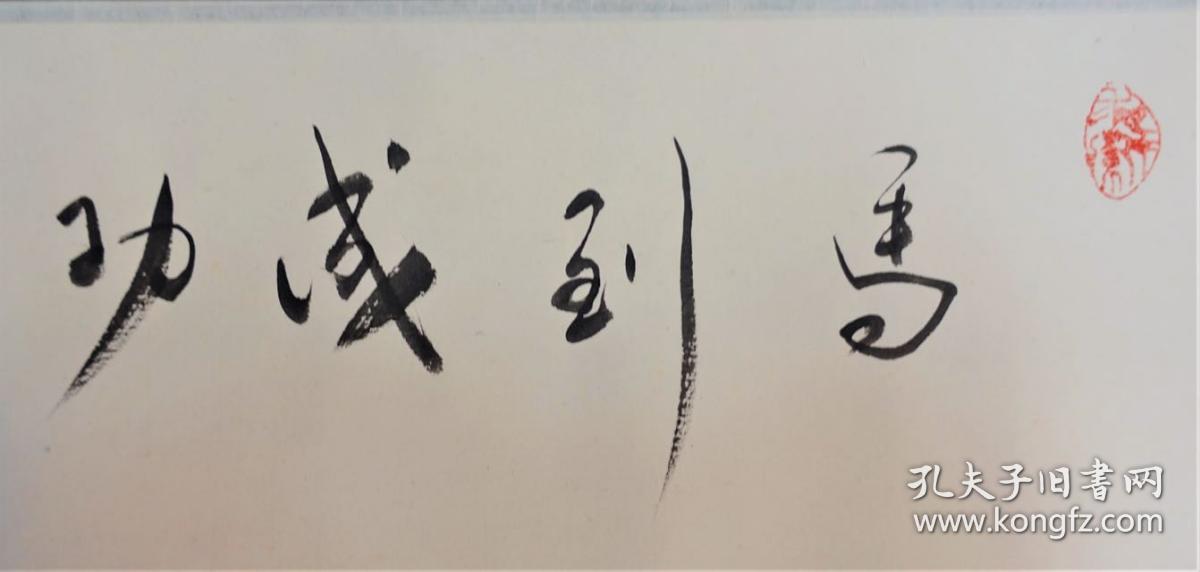 馬到成功
孔夫子旧書网
www.kongfz.com